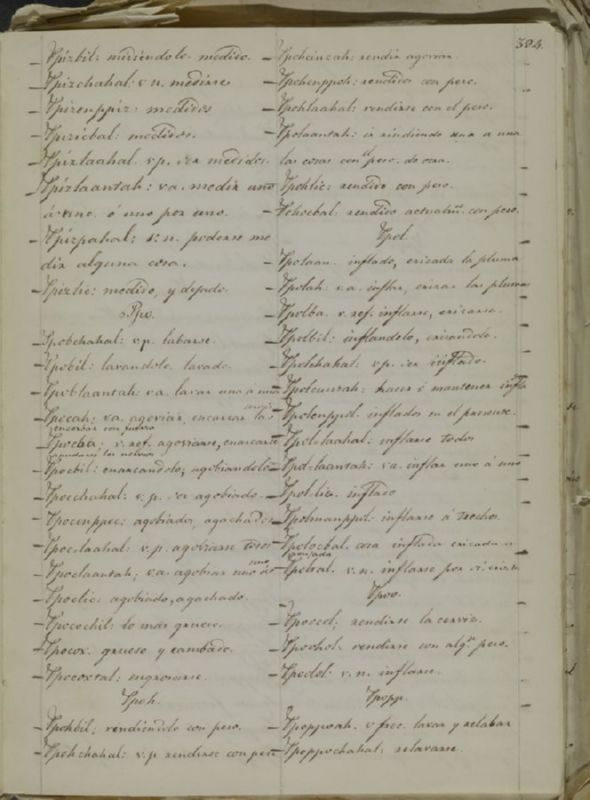 304.
Ppizbil: midiéndolo. medido.
Ppizchahal. v. n. medirse
Ppizenppiz: medidos
Ppizicbal: medidos.
Ppizlaahal. v.p. ser medidos.
Ppizlaantah: v.a. medir uno
á uno. ó uno por uno.
Ppizpahal: v. n. poderse me
dir alguna cosa.
Ppiztic: medido, y dejado.
Ppo.
Ppobchahal: v.p. labarse.
Ppobil: lavandolo. lavado.
Ppoblaantah: v.a. lavar uno á uno
Ppocah: v.a. agoviar, encorvar
Ppocba; v. ref. agoviarse,
Ppocbil: enarcandolo, agobiandolo
Ppocchahal: v.p. ser agobiado.
Ppocenppoc: agobiados, agachados
Ppoclaahal: v. p. agobiarse todos
Ppoclaantah; v.a. agobiar uno á uno
Ppoctic: agobiado, agachado.
Ppocochil: lo mas grueso.
Ppocox. grueso y cambado.
Ppocoxtal: engrosarse.
Ppoh.
Ppohbil; rendiendolo con peso.
Ppohchahal: v.p rendirse con peso
Ppohcinzah: rendir agoviar.
Ppohenppoh: rendidos con peso.
Ppohlaahal: rendirse con el peso.
Ppolaantah: ir rindiendo una a una
las cosas con el peso. de otra.
Ppohtic: rendido con peso.
Ppohocbal. rendido actualmte. con peso.
Ppol.
Ppolaan. inflado, erizada la pluma
Ppolah. v. a. inflar, erizar las plumas
Ppolba. v. ref. inflarse, erizarse.
Ppolbil: inflandolo, erizandolo.
Ppolchahal: v.p. ser inflado.
Ppolcinzah: hacer ó mantener
Ppolenppol. inflados en el presente.
Ppollaahal: inflarse todos
Ppollaantah: v. a. inflar uno á uno
Ppoltic. inflado
Ppolmanppol: inflarse á trechos.
Ppolocbal. cosa inflada erizada
Ppoltal. v. n. inflarse por sí
Ppoo.
Ppoocol; rendirse la cerviz.
Ppoohol. rendirse con algn. peso.
Ppoolol: v. n. inflarse.
Ppopp.
Ppoppoah. v frec. lavar y relabar
Ppoppochahal: relavarse.